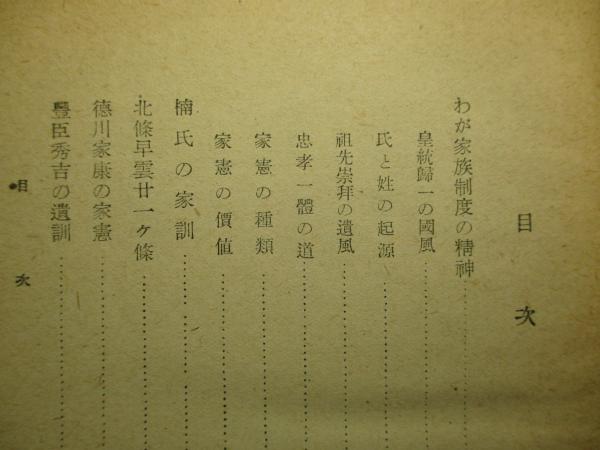 目次
わが家族制度の精神
皇統歸一の國風
氏と姓の起源
祖先崇拜の遺風
忠孝一體の道
家憲の種類
家憲の價値
楠氏の家訓
北條早雲廿一ケ條
德川家康の家憲
豐臣秀吉の遺訓
目次